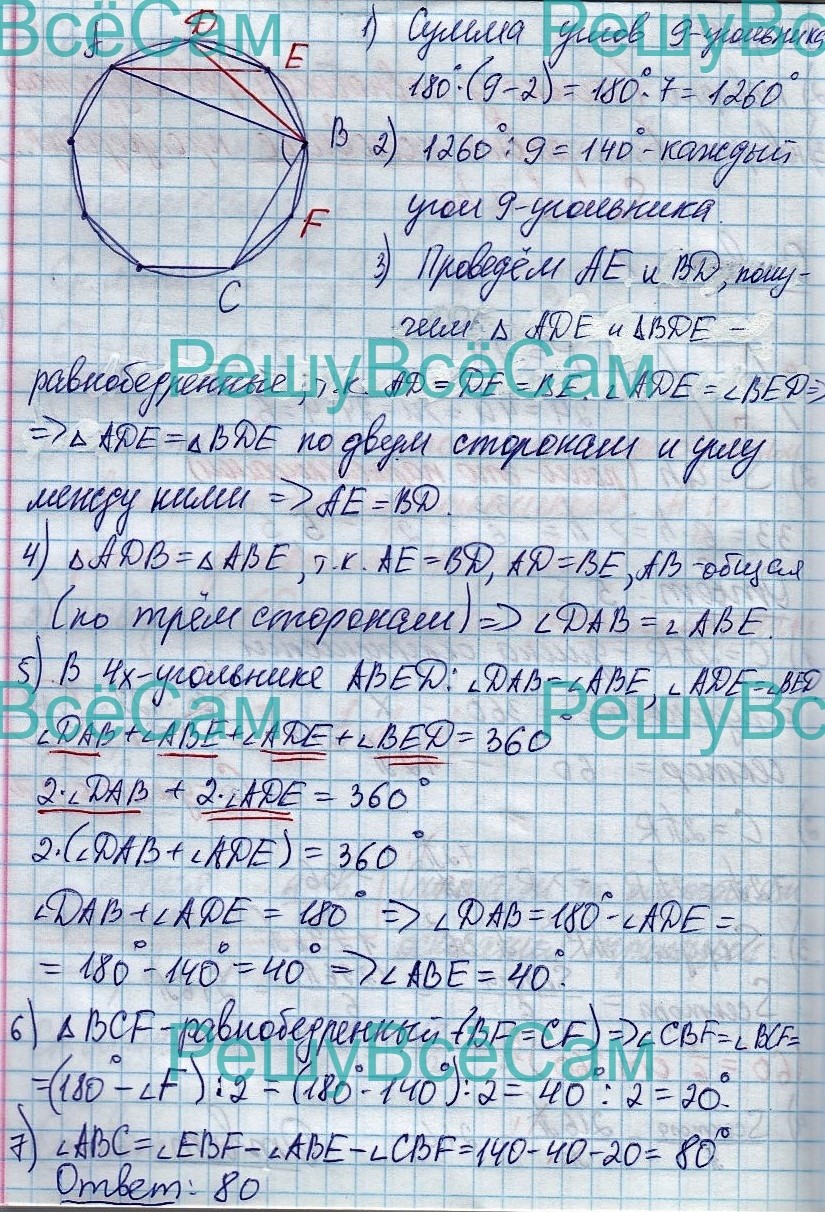 ВсёСам
РешуВсё
A
D
E
B
F
C
1) Сумма углов 9-угольника
180°·(9-2) = 180°·7 = 1260°
2) 1260° : 9 = 140° - каждый
угол 9-угольника.
3) Проведём AE и BD, полу-
чим △ADE и △BDE -
РешуВсёСам
равнобедренные, т.к. AD = DE = BE. ∠ADE = ∠BED =>
=> △ADE = △BDE по двум сторонам и углу
между ними => AE = BD.
4) △ADB = △ABE, т.к. AE = BD, AD = BE, AB - общая
(по трём сторонам) => ∠DAB = ∠ABE.
5) В 4х-угольнике ABED: ∠DAB = ∠ABE, ∠ADE = ∠BED
ВсёСам
РешуВсё
∠DAB + ∠ABE + ∠ADE + ∠BED = 360°
2·∠DAB + 2·∠ADE = 360°
2·(∠DAB + ∠ADE) = 360°
∠DAB + ∠ADE = 180° => ∠DAB = 180° - ∠ADE =
= 180° - 140° = 40° => ∠ABE = 40°.
6) △BCF - равнобедренный (BF = CF) => ∠CBF = ∠BCF =
РешуВсёСам
= (180° - ∠F) : 2 = (180° - 140°) : 2 = 40° : 2 = 20°.
7) ∠ABC = ∠EBF - ∠ABE - ∠CBF = 140 - 40 - 20 = 80°
Ответ: 80